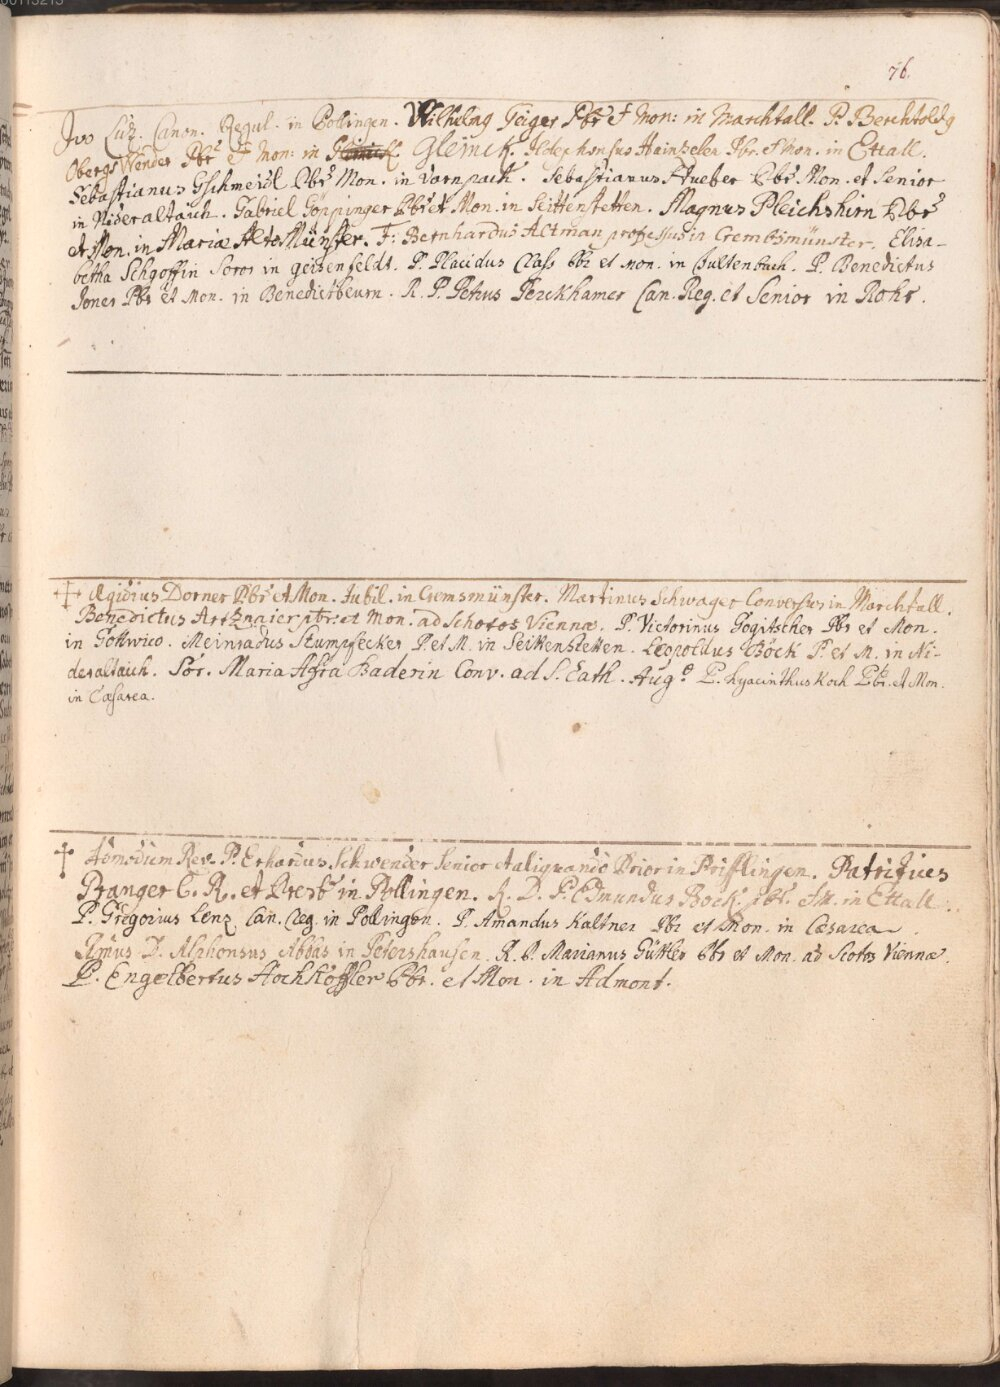 76.
Ivo Luz. Canon. Regul. in Pollingen. Wilhelmg Geiger Pbr et Mon: in Marchtall. P. Berchtoldg
Obergs Wender Pbr et Mon: in Gleinck. Ildephonsus Hainzelen Pbr. et Mon. in Ettall.
Sebastianus Gschmeidl Pbr Mon. in Varnpach. Sebastianus Hueber Pbr Mon. et Senior
in Nideraltaich. Gabriel Göppinger Pbr et Mon. in Seittenstetten. Magnus Pleichshirn Pbr
et Mon. in Mariæ AltoMünster. F: Bernhardus Altman professus in Crembsmünster. Elisa-
betha Schgoffin Soror in geisenfeldt. P. Placidus Class Pbr et Mon. in Pultenbuch. P. Benedictus
Joner Pbr et Mon. in Benedictbeurn. R. P. Petrus Perckhamer Can. Reg. et Senior in Rohr.
Ægidius Dorner Pbr et Mon. Jubil. in Cremsmünster. Martinus Schwager Conversus in Marchtall.
Benedictus Artznaier pbr: et Mon. ad Schotos Viennæ. P. Victorinus Gogitscher Pbr et Mon.
in Gottwico. Meinradus Stumpfecker P. et M. in Seitenstetten. Leopoldus Böck P. et M. in Ni-
deraltaich. Sor. Maria Afra Baderin Conv. ad S. Cath. Aug. P. Hyacinthus Koch Pbr. et Mon.
in Cæsarea.
Admodum Rev. P. Erhardus Schwender Senior et aliquando Prior in Prifflingen. Patritius
Pranger C. R. et Presb in Pollingen. A. D. P. Edmundus Bock pbr. et M. in Ettall.
P. Gregorius Lenz Can. Reg. in Pollingen. P. Amandus Kaltner Pbr et Mon. in Cæsarea.
Rmus D. Alphonsus Abbas in Petershausen. R. P. Marianus Güttler Pbr et Mon. ad Scotos Viennæ.
P. Engelbertus Hochköffler Pbr. et Mon. in Admont.